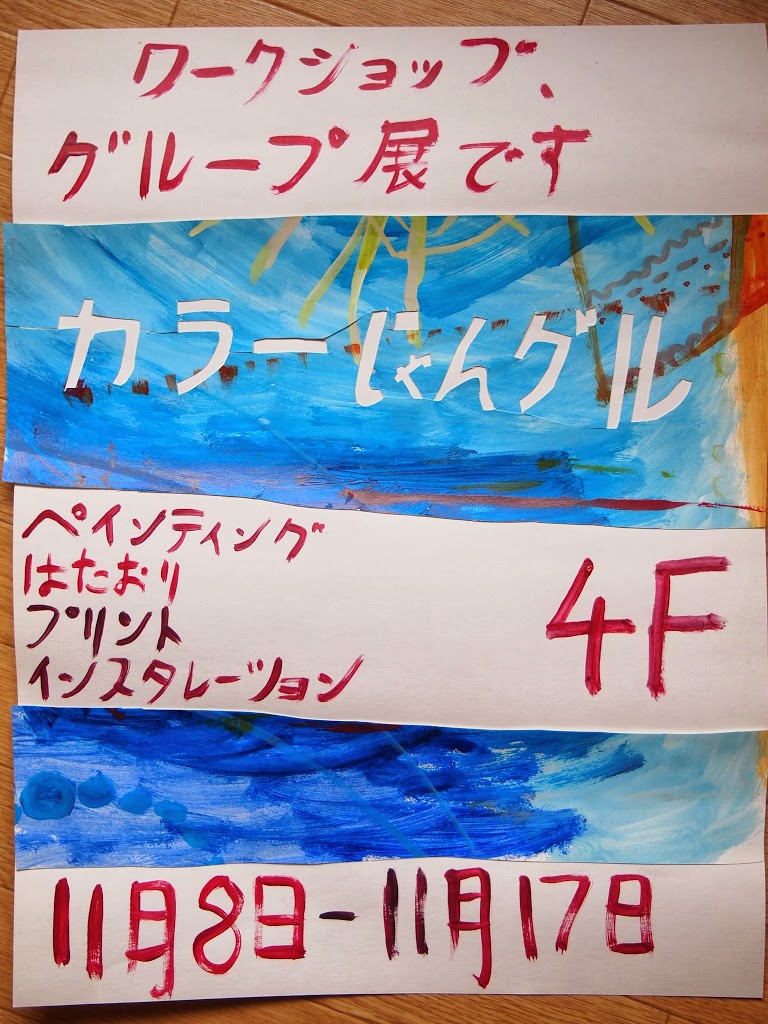 ワークショップ、
グループ展です
カラーじゃんグル
ペインティング
はたおり
プリント
インスタレーション
4F
11月8日-11月17日